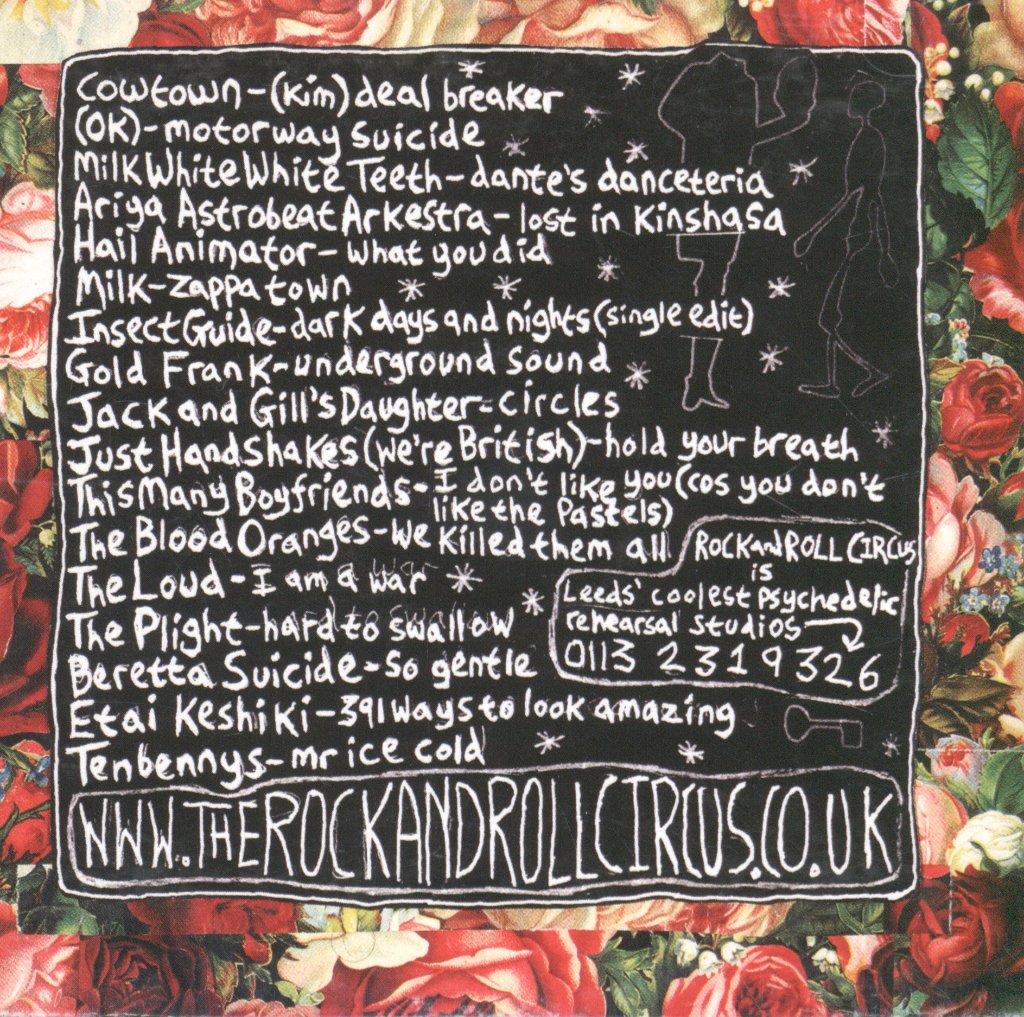 Cowtown-(Kim) deal breaker
(OK)-motorway suicide
Milk White White Teeth-dante's danceteria
Ariya Astrobeat Arkestra-lost in Kinshasa
Hail Animator-what you did
Milk-zappatown
Insect Guide-dark days and nights (single edit)
Gold Frank-underground sound
Jack and Gill's Daughter-circles
Just Handshakes (we're British)-hold your breath
This Many Boyfriends-I don't like you (cos you don't
like the Pastels)
The Blood Oranges-We killed them all
The Loud-I am a war
The Plight-hard to swallow
Beretta Suicide-so gentle
Etai Keshiki-391 ways to look amazing
Tenbennys-mr ice cold
ROCK and ROLL CIRCUS
is
Leeds' coolest psychedelic
rehearsal studios
0113 2319326
WWW.THEROCKANDROLLCIRCUS.CO.UK